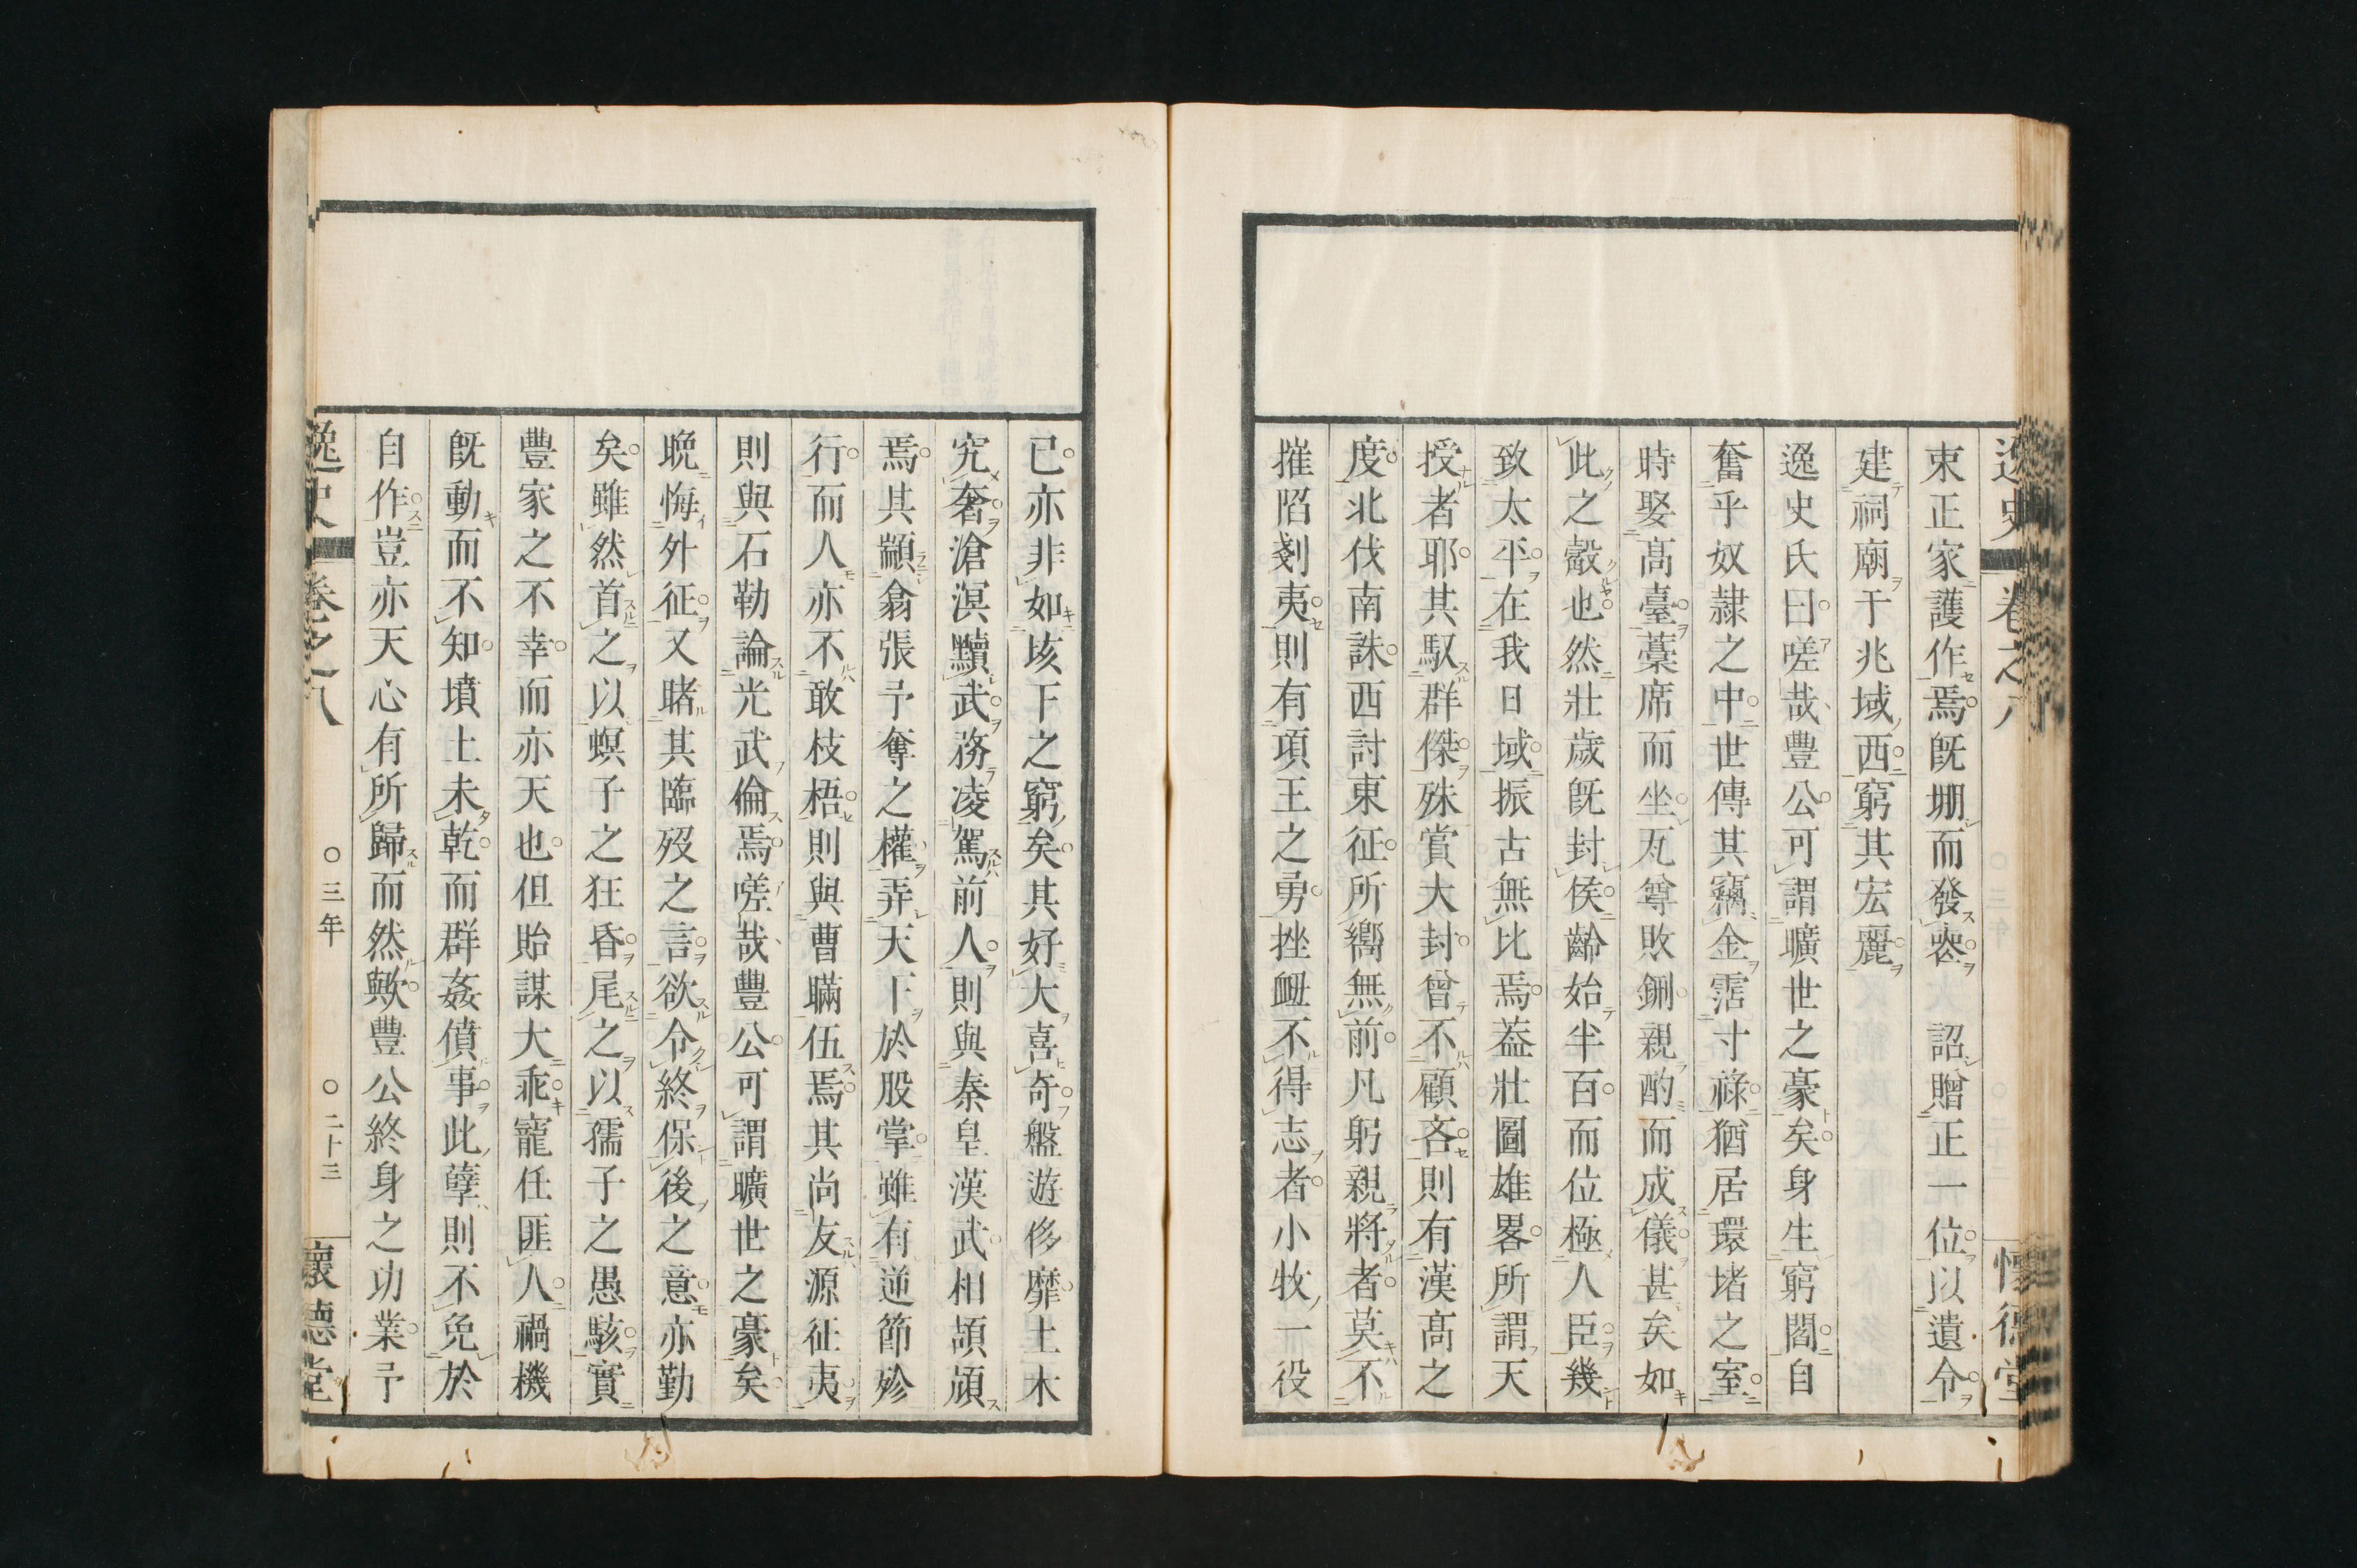 逸史 卷之八 懷德堂
束正家護作焉既堋而發喪詔贈正一位以遺令
建祠廟于兆域西窮其宏麗
逸史氏曰嗟哉豐公可謂曠世之豪矣身生窮閻自
奮乎奴隷之中世傳其竊金霑寸祿猶居環堵之室
時娶髙臺藁席而坐瓦尊敗鉶親酌而成儀甚矣如
此之觳也然壯歲既封侯齡始半百而位極人臣幾
致太平在我日域振古無比焉葢壯圖雄畧所謂天
授者耶其馭群傑殊賞大封曾不顧吝則有漢髙之
度北伐南誅西討東征所嚮無前凡躬親將者莫不
摧陷剗夷則有項王之勇挫衄不得志者小牧一役
已亦非如垓下之窮矣其好大喜奇盤遊侈靡土木
究奢滄溟黷武務凌駕前人則與秦皇漢武相頡頏
焉其顓翕張予奪之權弄天下於股掌雖有逆節殄
行而人亦不敢枝梧則與曹瞞伍焉其尚友源征夷
則與石勒論光武倫焉嗟哉豐公可謂曠世之豪矣
晩悔外征又睹其臨歿之言欲令終保後之意亦勤
矣雖然首之以螟子之狂昏尾之以孺子之愚駭實
豐家之不幸而亦天也但貽謀大乖寵任匪人禍機
既動而不知墳土未乾而群姦僨事此孽則不免於
自作豈亦天心有所歸而然歟豐公終身之功業予
逸史 卷之八 ○三年 ○二十三 懷德堂